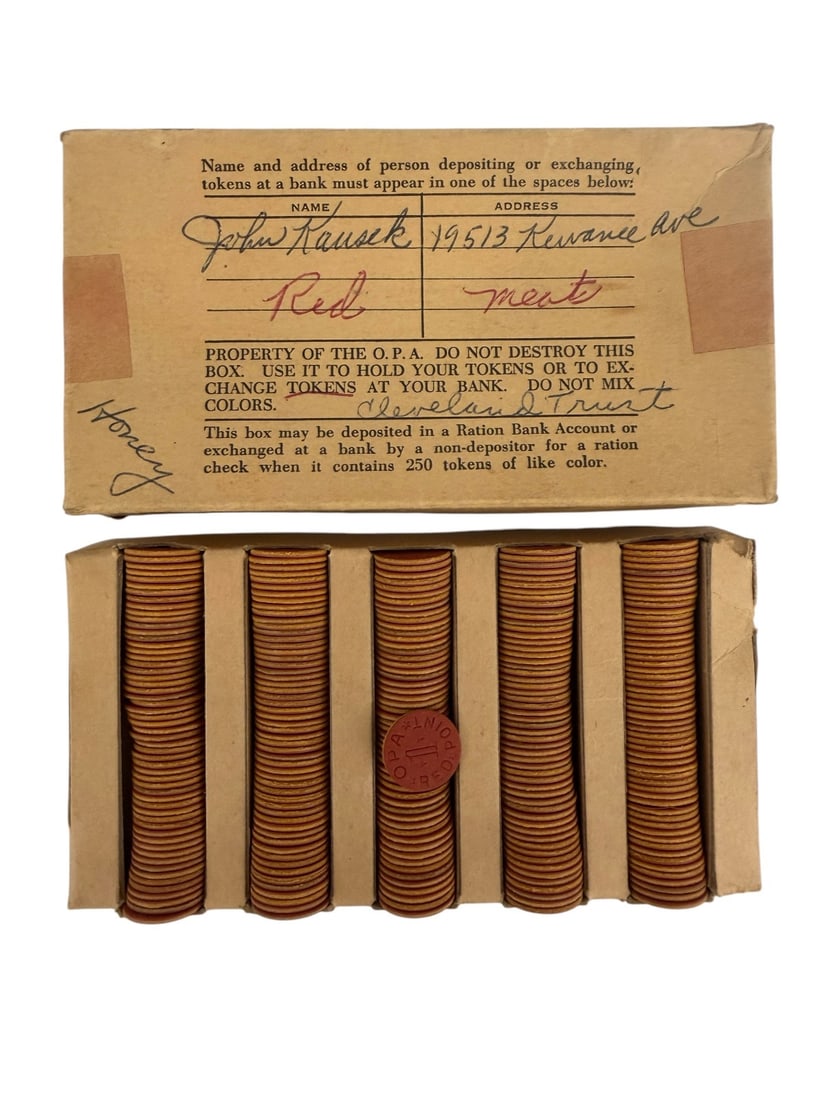 Name and address of person depositing or exchanging
tokens at a bank must appear in one of the spaces below:
NAME ADDRESS
John Kausek 19513 Kewanee Ave
Red Meats
PROPERTY OF THE O. P. A. DO NOT DESTROY THIS
BOX. USE IT TO HOLD YOUR TOKENS OR TO EX-
CHANGE TOKENS AT YOUR BANK. DO NOT MIX
COLORS. Cleveland Trust
Honey
This box may be deposited in a Ration Bank Account or
exchanged at a bank by a non-depositor for a ration
check when it contains 250 tokens of like color.
OPA * RED POINT *
1